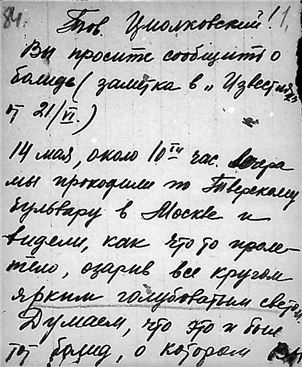 84.
Тов. Циолковский! 1,
Вы просите сообщить о
болиде (заметка в „Известиях"
от 21/VI.)
14 мая, около 10ти час. вечера
мы проходили по Тверскому
бульвару в Москве и
видели, как что то проле-
тело, озарив все кругом
ярким голубоватым светом
Думаем, что это и был
тот болид, о котором Вы